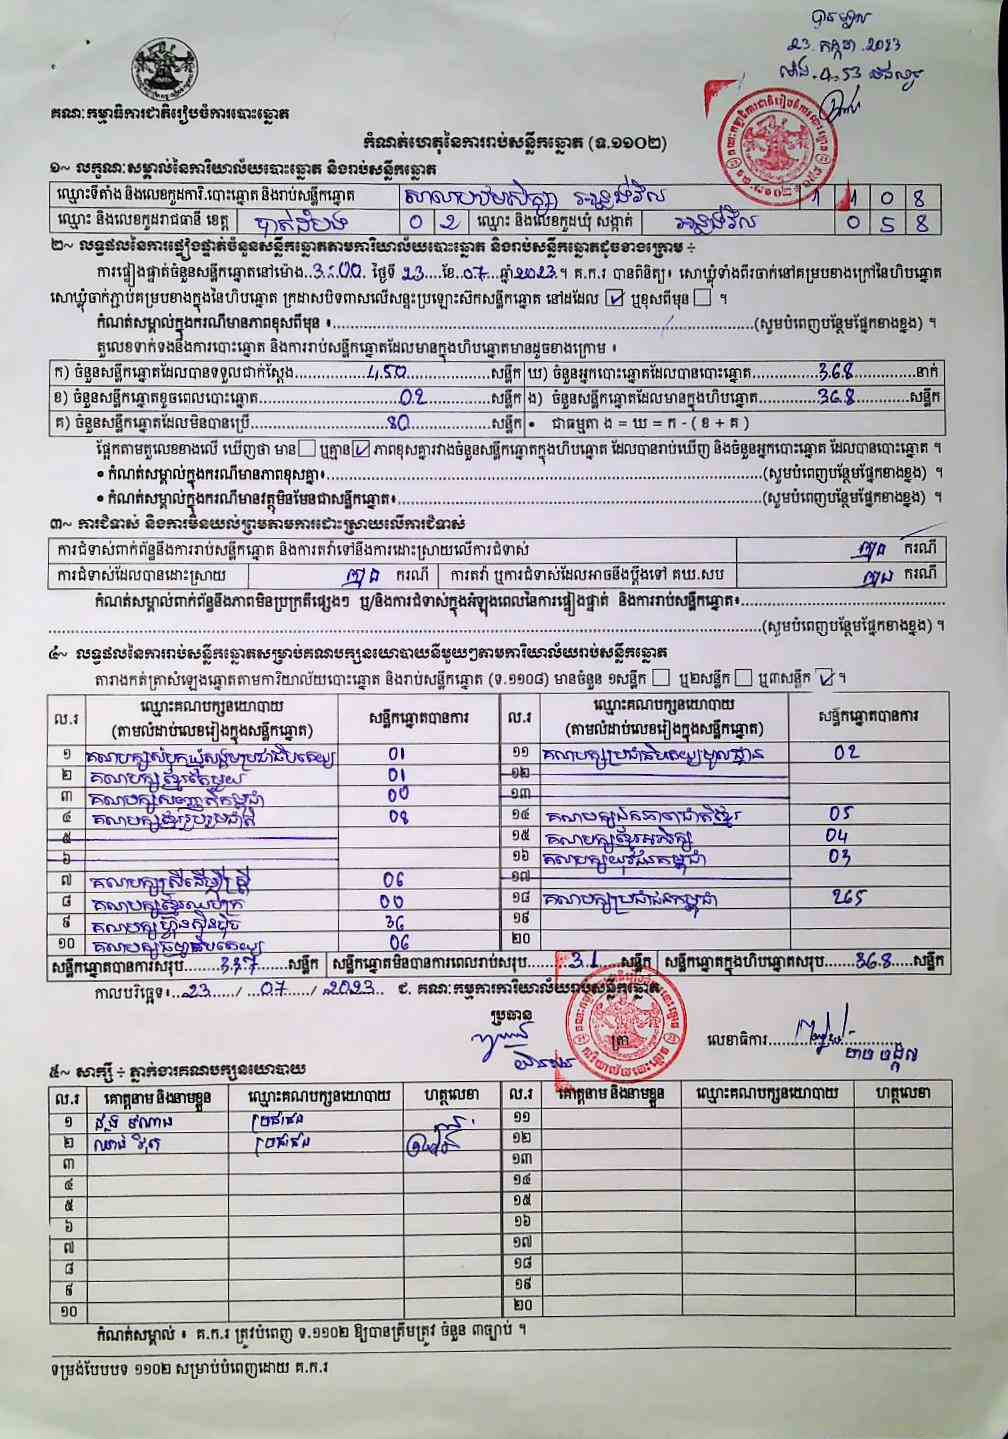 23. កក្កដា .2023
ម៉ោង. 4.53
គណៈកម្មាធិការជាតិរៀបចំការបោះឆ្នោត
កំណត់ហេតុនៃការរាប់សន្លឹកឆ្នោត (ទ.១១០២)
១~ លក្ខណៈសម្គាល់នៃការិយាល័យបោះឆ្នោត និងរាប់សន្លឹកឆ្នោត
ឈ្មោះទីតាំង និងលេខកូដការិ.បោះឆ្នោត និងរាប់សន្លឹកឆ្នោត សាលាបឋមសិក្សា អន្លង់វិល 1 1 0 8
ឈ្មោះ និងលេខកូដរាជធានី ខេត្ត បាត់ដំបង 0 2 ឈ្មោះ និងលេខកូដឃុំ សង្កាត់ អន្លង់វិល 0 5 8
២~ លទ្ធផលនៃការផ្ទៀងផ្ទាត់ចំនួនសន្លឹកឆ្នោតតាមការិយាល័យបោះឆ្នោត និងរាប់សន្លឹកឆ្នោតដូចខាងក្រោម ÷
ការផ្ទៀងផ្ទាត់ចំនួនសន្លឹកឆ្នោតនៅម៉ោង..3:00. ថ្ងៃទី 23....ខែ.07....ឆ្នាំ2023.។ គ.ក.រ បានពិនិត្យ៖ សោឃ្លុំទាំងពីរចាក់នៅគម្របខាងក្រៅនៃហិបឆ្នោត
សោឃ្លុំចាក់ភ្ជាប់គម្របខាងក្នុងនៃហិបឆ្នោត ក្រដាសបិទពាសលើសន្ទះប្រឡោះស៊កសន្លឹកឆ្នោត នៅដដែល ☑ ឬខុសពីមុន ☐ ។
កំណត់សម្គាល់ក្នុងករណីមានភាពខុសពីមុន ៖......(សូមបំពេញបន្ថែមផ្នែកខាងខ្នង) ។
តួលេខទាក់ទងនឹងការបោះឆ្នោត និងការរាប់សន្លឹកឆ្នោតដែលមានក្នុងហិបឆ្នោតមានដូចខាងក្រោម ៖
ក) ចំនួនសន្លឹកឆ្នោតដែលបានទទួលជាក់ស្តែង......450......សន្លឹក ឃ) ចំនួនអ្នកបោះឆ្នោតដែលបានបោះឆ្នោត......368......នាក់
ខ) ចំនួនសន្លឹកឆ្នោតខូចពេលបោះឆ្នោត......02......សន្លឹក ង) ចំនួនសន្លឹកឆ្នោតដែលមានក្នុងហិបឆ្នោត......368......សន្លឹក
គ) ចំនួនសន្លឹកឆ្នោតដែលមិនបានប្រើ......80......សន្លឹក • ជាធម្មតា ង = ឃ = ក - ( ខ + គ )
ផ្អែកតាមតួលេខខាងលើ ឃើញថា មាន ☐ ឬគ្មាន ☑ ភាពខុសគ្នារវាងចំនួនសន្លឹកឆ្នោតក្នុងហិបឆ្នោត ដែលបានរាប់ឃើញ និងចំនួនអ្នកបោះឆ្នោត ដែលបានបោះឆ្នោត ។
• កំណត់សម្គាល់ក្នុងករណីមានភាពខុសគ្នា៖......(សូមបំពេញបន្ថែមផ្នែកខាងខ្នង) ។
• កំណត់សម្គាល់ក្នុងករណីមានវត្ថុមិនមែនជាសន្លឹកឆ្នោត៖......(សូមបំពេញបន្ថែមផ្នែកខាងខ្នង) ។
៣~ ការជំទាស់ និងការមិនយល់ព្រមតាមការដោះស្រាយលើការជំទាស់
ការជំទាស់ពាក់ព័ន្ធនឹងការរាប់សន្លឹកឆ្នោត និងការតវ៉ាទៅនឹងការដោះស្រាយលើការជំទាស់ គ្មាន ករណី
ការជំទាស់ដែលបានដោះស្រាយ គ្មាន ករណី ការតវ៉ា ឬការជំទាស់ដែលអាចនឹងប្តឹងទៅ គឃ.សប គ្មាន ករណី
កំណត់សម្គាល់ពាក់ព័ន្ធនឹងភាពមិនប្រក្រតីផ្សេងៗ ឬ/និងការជំទាស់ក្នុងអំឡុងពេលនៃការផ្ទៀងផ្ទាត់ និងការរាប់សន្លឹកឆ្នោត៖......
......(សូមបំពេញបន្ថែមផ្នែកខាងខ្នង) ។
៤~ លទ្ធផលនៃការរាប់សន្លឹកឆ្នោតសម្រាប់គណបក្សនយោបាយនីមួយៗតាមការិយាល័យរាប់សន្លឹកឆ្នោត
តារាងកត់ត្រាសំឡេងឆ្នោតតាមការិយាល័យបោះឆ្នោត និងរាប់សន្លឹកឆ្នោត (ទ.១១០៨) មានចំនួន ១សន្លឹក ☐ ឬ២សន្លឹក ☐ ឬ៣សន្លឹក ☑ ។
ល.រ ឈ្មោះគណបក្សនយោបាយ (តាមលំដាប់លេខរៀងក្នុងសន្លឹកឆ្នោត) សន្លឹកឆ្នោតបានការ ល.រ ឈ្មោះគណបក្សនយោបាយ (តាមលំដាប់លេខរៀងក្នុងសន្លឹកឆ្នោត) សន្លឹកឆ្នោតបានការ
១ គណបក្សសំបុកឃ្មុំសង្គមប្រជាធិបតេយ្យ 01 ១១ គណបក្សប្រជាធិបតេយ្យមូលដ្ឋាន 02
២ គណបក្សខ្មែរតែមួយ 01 ១២
៣ គណបក្សសញ្ជាតិកម្ពុជា 00 ១៣
៤ គណបក្សខ្មែររួបរួមជាតិ 08 ១៤ គណបក្សឯកភាពជាតិខ្មែរ 05
៥ ១៥ គណបក្សខ្មែរអភិរក្ស 04
៦ ១៦ គណបក្សយុវជនកម្ពុជា 03
៧ គណបក្សស្រីដើម្បីស្ត្រី 06 ១៧
៨ គណបក្សខ្មែរឈប់ក្រ 00 ១៨ គណបក្សប្រជាជនកម្ពុជា 265
៩ គណបក្សហ៊្វុនស៊ិនប៉ិច 36 ១៩
១០ គណបក្សធម្មាធិបតេយ្យ 06 ២០
សន្លឹកឆ្នោតបានការសរុប......337......សន្លឹក សន្លឹកឆ្នោតមិនបានការពេលរាប់សរុប......31......សន្លឹក សន្លឹកឆ្នោតក្នុងហិបឆ្នោតសរុប......368.....សន្លឹក
កាលបរិច្ឆេទ៖...23....../ ...07....../ .2023.. ជ. គណៈកម្មការការិយាល័យរាប់សន្លឹកឆ្នោត
ប្រធាន
ត្រា លេខាធិការ......
៥~ សាក្សី ÷ ភ្នាក់ងារគណបក្សនយោបាយ
ល.រ គោត្តនាម និងនាមខ្លួន ឈ្មោះគណបក្សនយោបាយ ហត្ថលេខា ល.រ គោត្តនាម និងនាមខ្លួន ឈ្មោះគណបក្សនយោបាយ ហត្ថលេខា
១ ប្រជាជន ១១
២ ប្រជាជន ១២
៣ ១៣
៤ ១៤
៥ ១៥
៦ ១៦
៧ ១៧
៨ ១៨
៩ ១៩
១០ ២០
កំណត់សម្គាល់ ៖ គ.ក.រ ត្រូវបំពេញ ទ.១១០២ ឱ្យបានត្រឹមត្រូវ ចំនួន ៣ច្បាប់ ។
ទម្រង់បែបបទ ១១០២ សម្រាប់បំពេញដោយ គ.ក.រ